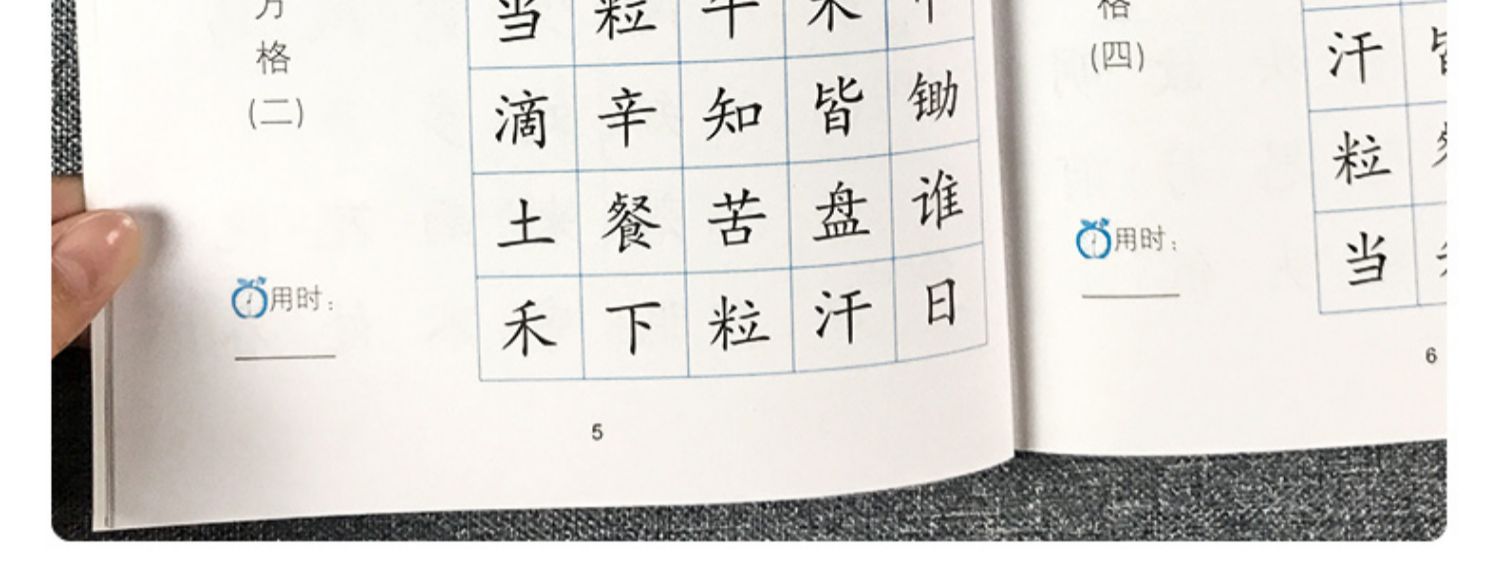 方
格
(二)
用时：
当 粒 午 禾
滴 辛 知 皆 锄
土 餐 苦 盘 谁
禾 下 粒 汗 日
5
格
(四)
用时：
汗 皆
粒
当
6